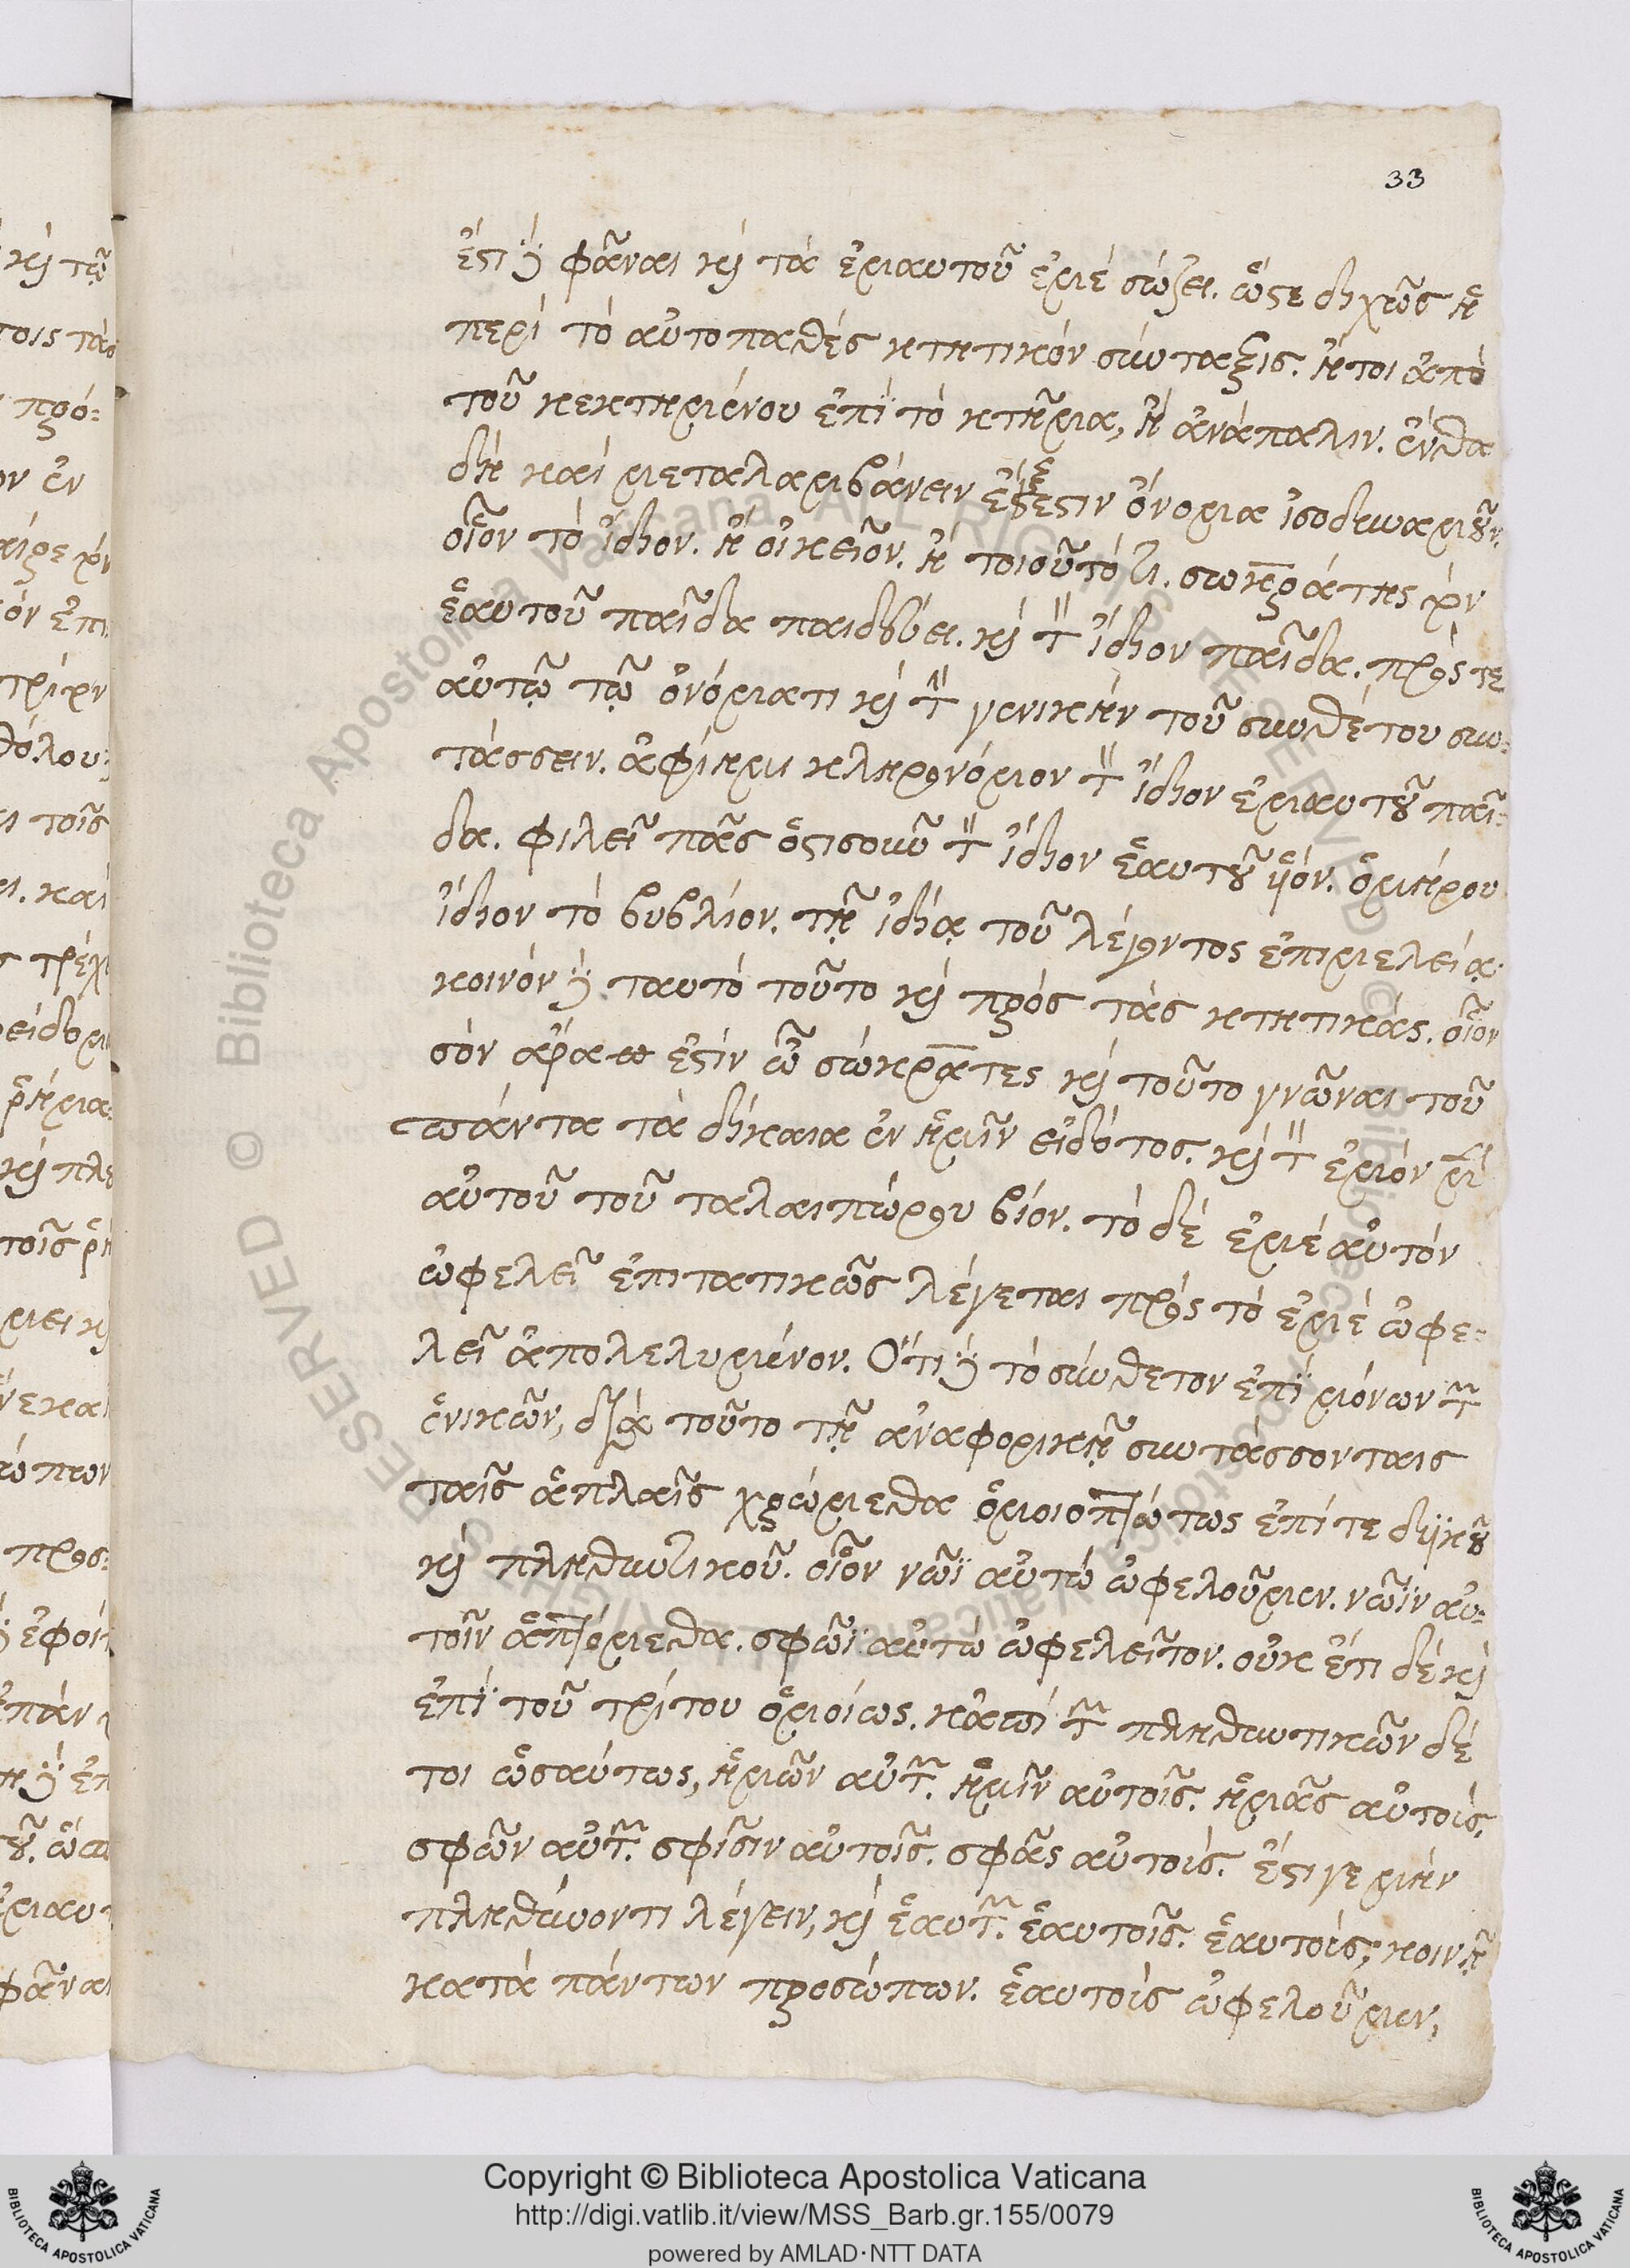 33
ἔστι δὲ φᾶναι καὶ τὰ ἐμαυτοῦ ἐμὲ σώζει. ὥστε διχῶς ἡ
περὶ τὸ αὐτοπαθὲς κτητικὸν σύνταξις. ἤτοι ἀπὸ
τοῦ κεκτημένου ἐπὶ τὸ κτῆμα, ἢ ἀνάπαλιν. ἔνθα
δὴ καὶ μεταλαμβάνειν ἔξεστιν ὄνομα ἰσοδυναμοῦν.
οἷον τὸ ἴδιον. ἢ οἰκεῖον. ἢ τοιοῦτό τι. σωκράτης μὲν
ἑαυτοῦ παῖδα παιδεύει. καὶ τὸν ἴδιον παῖδα. πρός τε
αὐτῷ τῷ ὀνόματι καὶ τὴν γενικὴν τοῦ συνθέτου συν-
τάσσειν. ἀφίημι κληρονόμον τὸν ἴδιον ἐμαυτοῦ παῖ-
δα. φιλεῖ πᾶς ὁστισοῦν τὸν ἴδιον ἑαυτοῦ υἱόν. ὁμήρου
ἴδιον τὸ βυβλίον. τῇ ἰδίᾳ τοῦ λέγοντος ἐπιμελείᾳ.
κοινὸν δὲ ταυτὸ τοῦτο καὶ πρὸς τὰς κτητικάς. οἷον
σὸν ἄρα ἐστὶν ὦ σώκρατες καὶ τοῦτο γνῶναι τοῦ
πάντα τὰ δίκαια ἐν ἡμῖν εἰδότος. καὶ τὸν ἐμὸν
αὐτοῦ τοῦ ταλαιπώρου βίον. τὸ δὲ ἐμὲ αὐτὸν
ὠφελεῖ ἐπιτατικῶς λέγεται πρὸς τὸ ἐμὲ ὠφε-
λεῖ ἀπολελυμένον. Ὅτι δὲ τὸ σύνθετον ἐπὶ μόνων τῶν
ἑνικῶν, διὰ τοῦτο τῇ ἀναφορικῇ συντάσσοντας
ταῖς ἁπλαῖς χρώμεθα ὁμοιοπτώτως ἐπί τε δυϊκοῦ
καὶ πληθυντικοῦ. οἷον νῶϊ αὐτὼ ὠφελοῦμεν. νῶϊν αὐ-
τοῖν ἁπτόμεθα. σφῶϊ αὐτὼ ὠφελεῖτον. οὐκ ἔτι δὲ καὶ
ἐπὶ τοῦ τρίτου ὁμοίως. κἀπὶ τῶν πληθυντικῶν δέ
τοι ὡσαύτως, ἡμῶν αὐτῶν. ἡμῖν αὐτοῖς. ἡμᾶς αὐτούς.
σφῶν αὐτῶν. σφίσιν αὐτοῖς. σφᾶς αὐτούς. ἔστι γε μὴν
πληθύνοντι λέγειν, καὶ ἑαυτῶν. ἑαυτοῖς. ἑαυτούς, κοινῇ
κατὰ πάντων προσώπων. ἑαυτοὺς ὠφελοῦμεν,
© Biblioteca Apostolica Vaticana ALL RIGHTS RESERVED
Copyright © Biblioteca Apostolica Vaticana
http://digi.vatlib.it/view/MSS_Barb.gr.155/0079
powered by AMLAD·NTT DATA
BIBLIOTECA APOSTOLICA VATICANA
BIBLIOTECA APOSTOLICA VATICANA